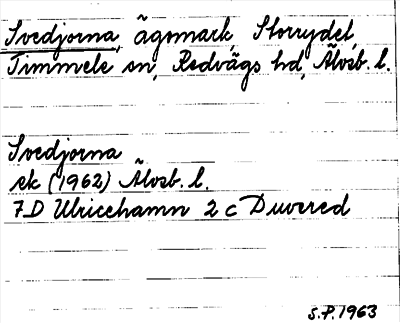 Svedjorna, ägomark, Storrydet,
Timmele sn, Redvägs hd, Älvsb. l.
Svedjorna
ek (1962) Älvsb. l.
7D Ulricehamn 2 c Duvered
S.P. 1963